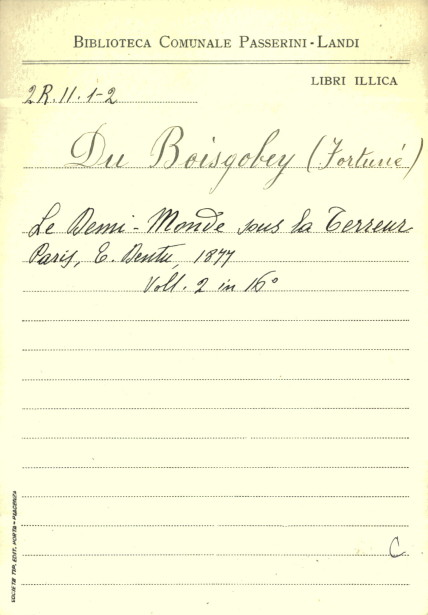 BIBLIOTECA COMUNALE PASSERINI-LANDI
LIBRI ILLICA
2R.II.1-2
Du Boisgobey (Fortuné)
Le Demi-Monde sous la Terreur
Paris, E. Dentu, 1877
Voll. 2 in 16°
C
SOCIETÀ TIP. EDIT. PORTA - PIACENZA